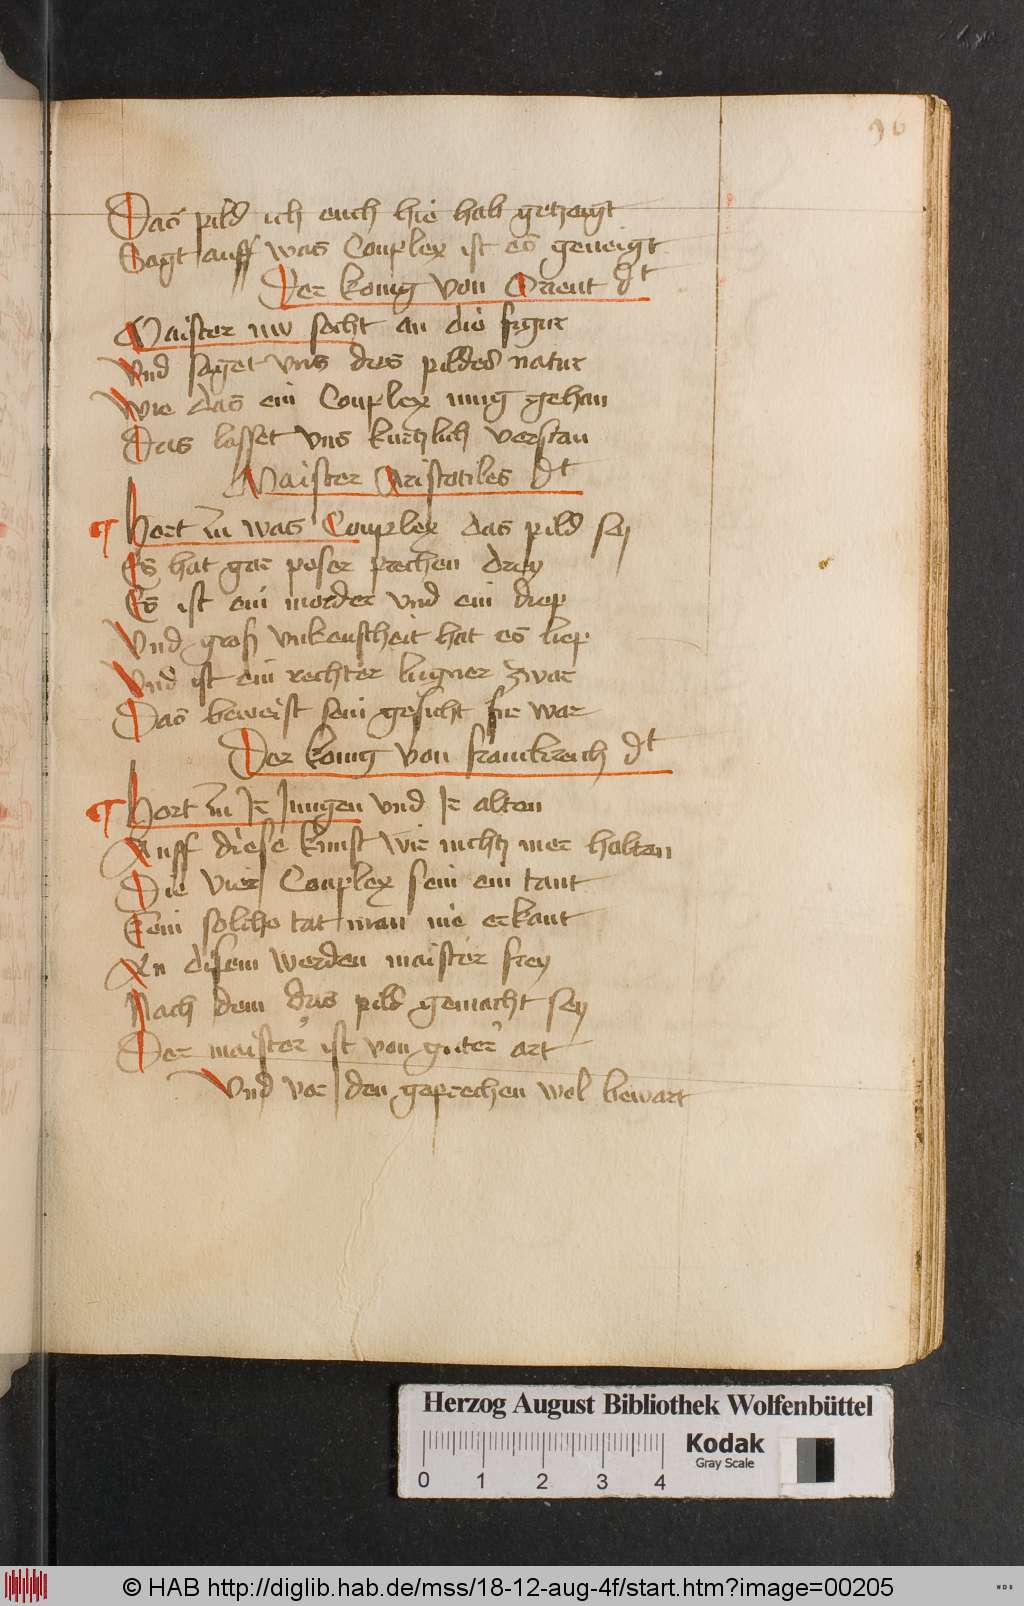 96
Das pild ich euch hie hab getzeigt
Sagt auff was Conplex ist es geneigt
Der konig von Orient dt
Maister nw secht an die figur
Vnd saget vns des pildes natur
Wie das ein Conplex mug gehan
Das lasset vns kurtzlich verstan
Maister Aristotiles dt
Hort zu was Conplex das pild sey
Es hat gar poser prechen drey
Es ist ein morder vnd ein diep
Vnd groß vnkeuscheit hat es liep
Vnd ist ein rechter lugner zwar
Das beweist sein gesicht fur war
Der konig von franckreich dt
Hort zu Ir Jungen vnd Ir alten
Auff diese kunst wir nichtz mer halten
Die vier Conplex sein ein tant
Kein solche tat man nie erkant
An disem werden maister frey
Nach dem das pild gemacht sey
Der maister ist von guter art
Vnd vor den geprechen wol bewart
Herzog August Bibliothek Wolfenbüttel
Kodak
Gray Scale
0 1 2 3 4
© HAB http://diglib.hab.de/mss/18-12-aug-4f/start.htm?image=00205